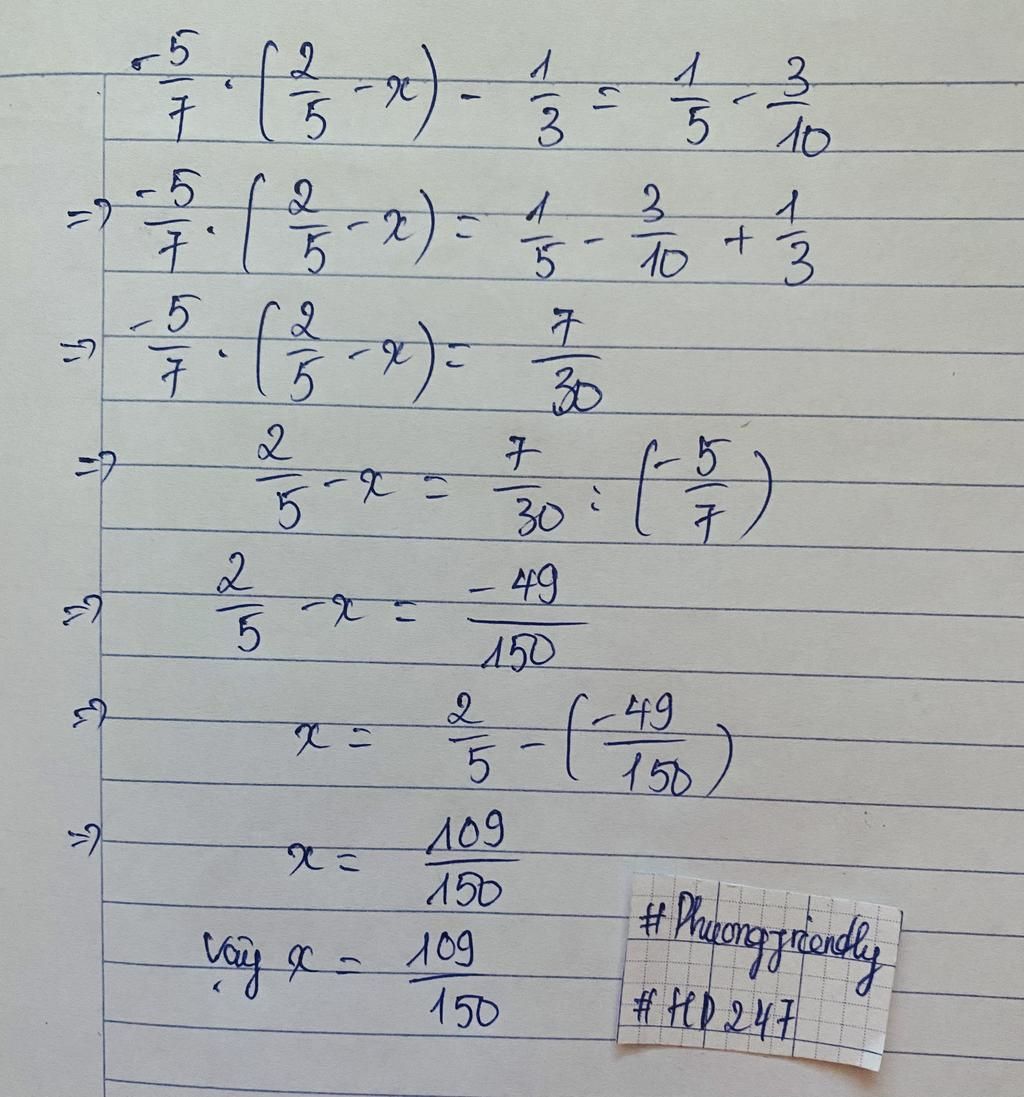 -5/7 · (2/5 - x) - 1/3 = 1/5 - 3/10
=> -5/7 · (2/5 - x) = 1/5 - 3/10 + 1/3
=> -5/7 · (2/5 - x) = 7/30
=> 2/5 - x = 7/30 : (-5/7)
=> 2/5 - x = -49/150
=> x = 2/5 - (-49/150)
=> x = 109/150
Vậy x = 109/150
#Phuongfriendly
#HD247